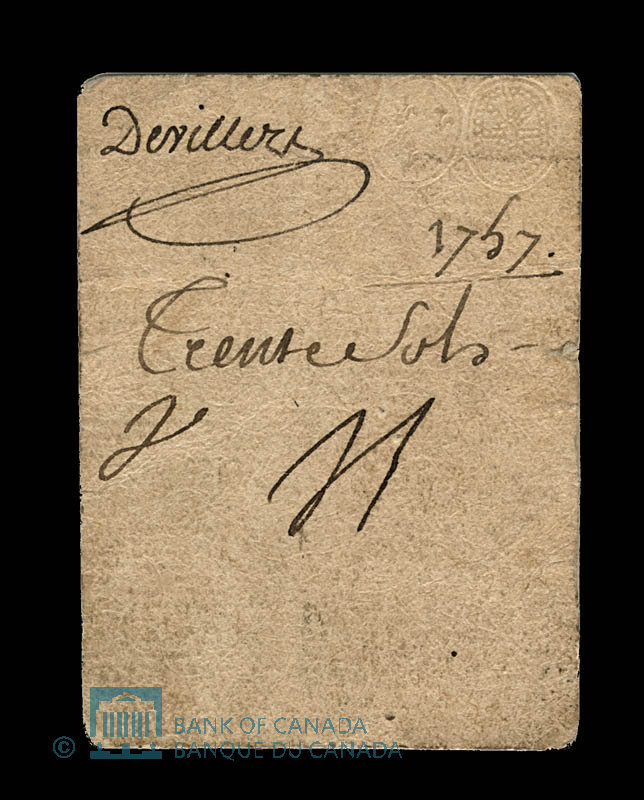 Devillers
1757.
Trente Sols
© BANK OF CANADA
BANQUE DU CANADA